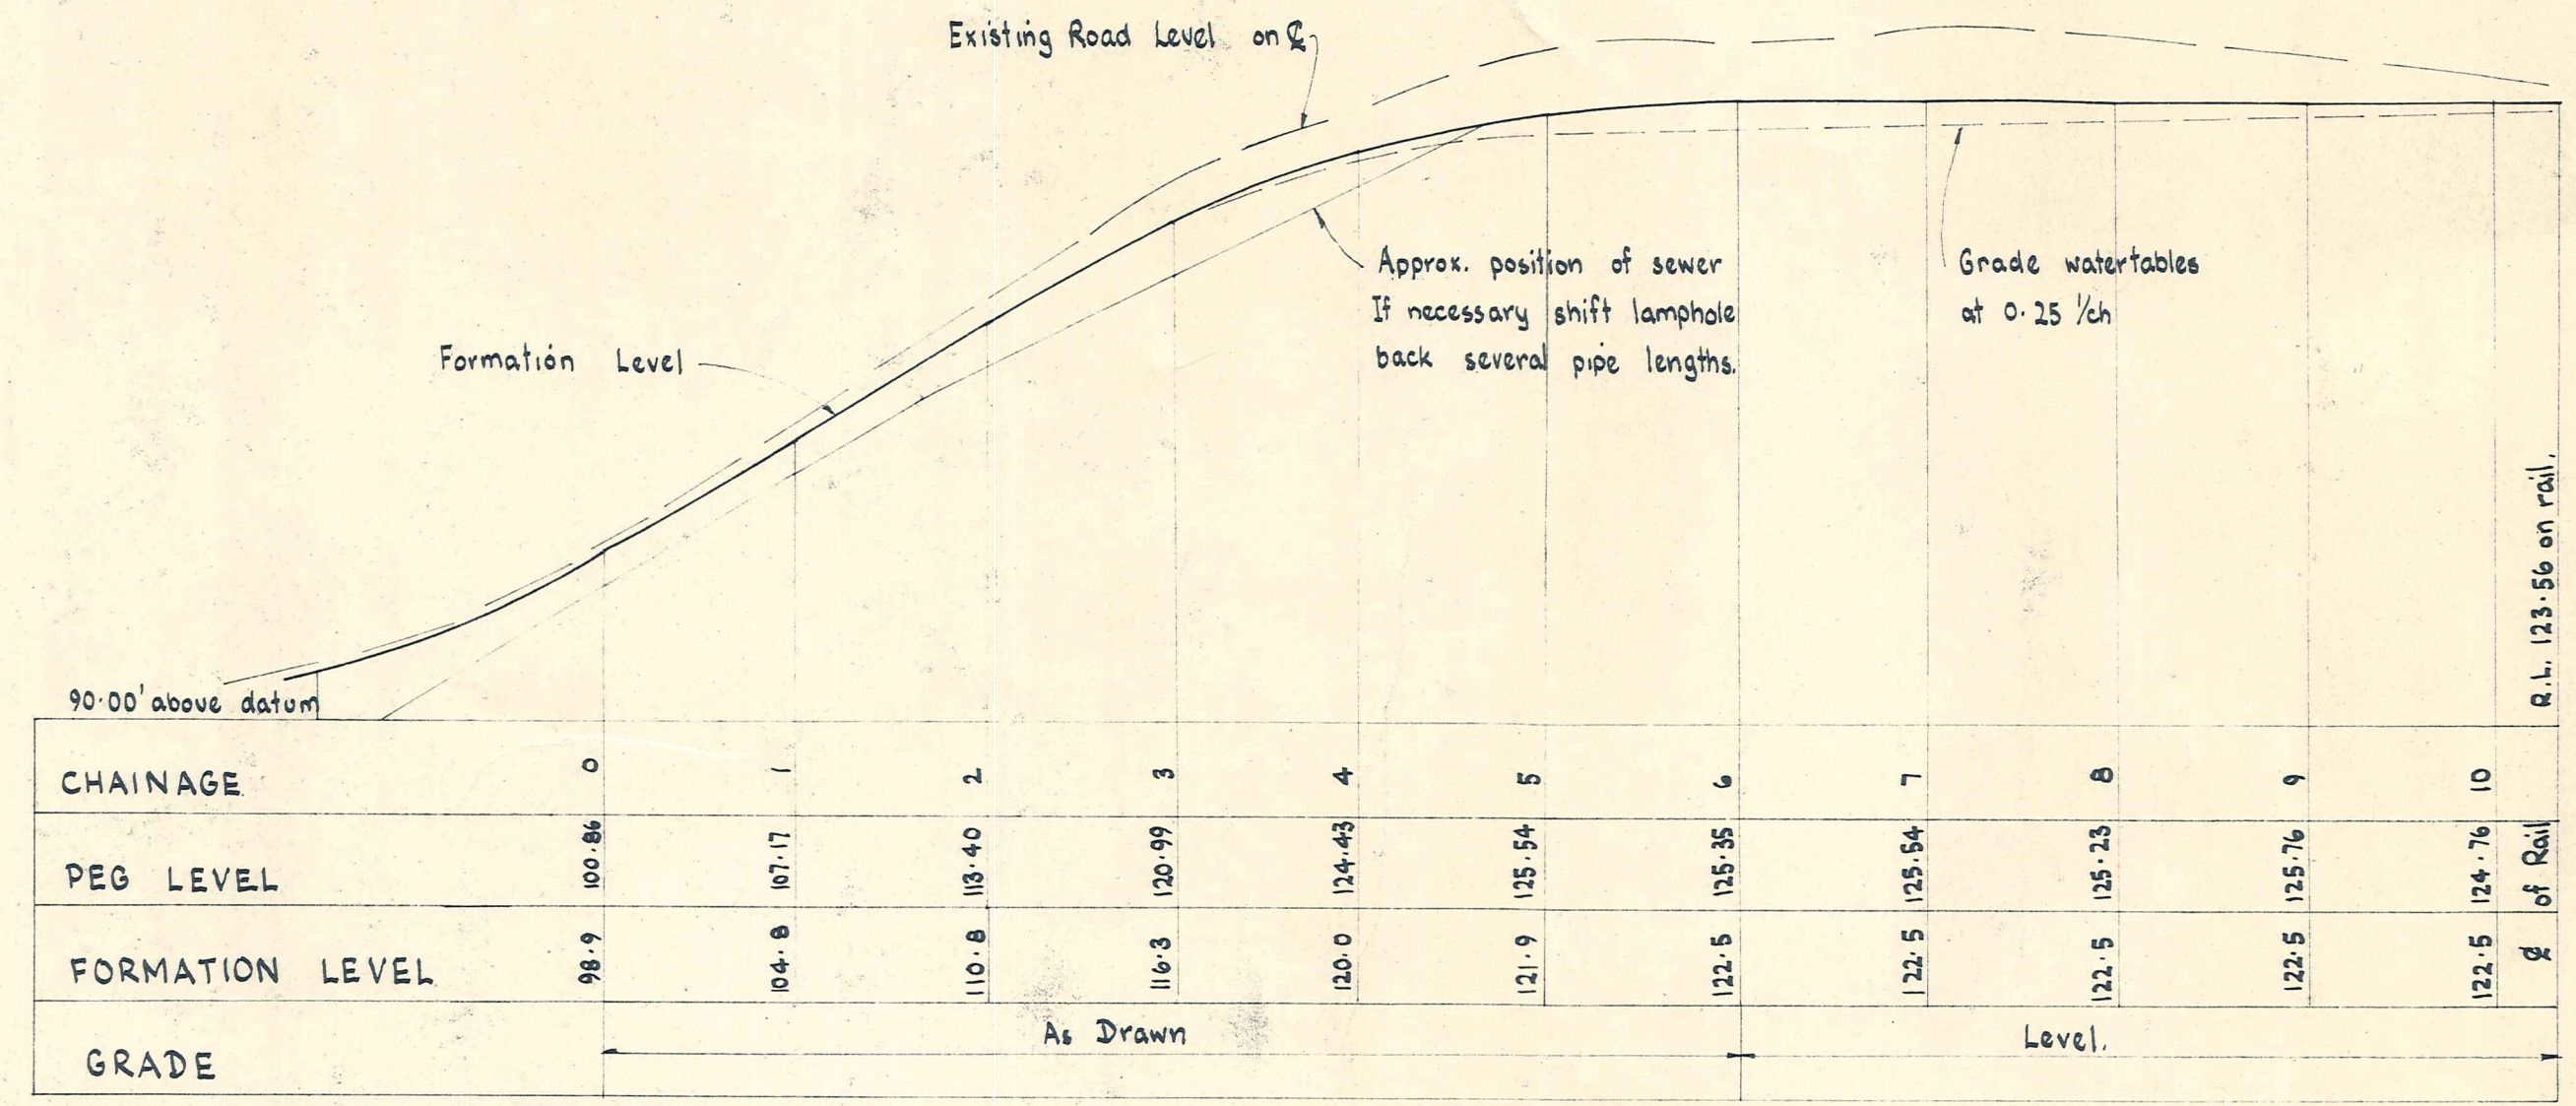 Existing Road Level on ℄
Formation Level
Approx. position of sewer
If necessary shift lamphole
back several pipe lengths.
Grade watertables
at 0.25 '/ch
R.L. 123.56 on rail.
90.00' above datum
CHAINAGE 0 1 2 3 4 5 6 7 8 9 10
PEG LEVEL 100.86 107.17 113.40 120.99 124.43 125.54 125.35 125.54 125.23 125.76 124.76
FORMATION LEVEL 98.9 104.8 110.8 116.3 120.0 121.9 122.5 122.5 122.5 122.5 122.5
℄ of Rail
GRADE As Drawn Level.